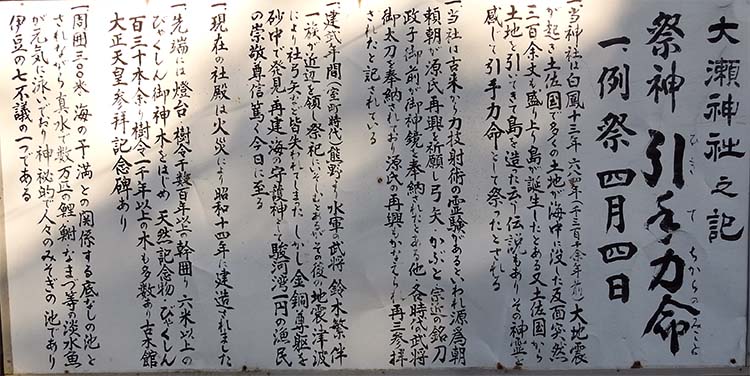 大瀬神社之記
祭神 引手力命
ひきてちからのみこと
一、例祭 四月四日
一、当神社は白凰十三年 六八四年(千三百余年前)大地震
が起き土佐国で多くの土地が海中に没した反面突然
三百余丈も盛り上り島が誕生したとある 又土佐国から
土地を引いてきて島を造った云う伝説もあり その神霊を
感じて引手力命として祭ったとされる
一、当社は古来から力技射術の霊験があるといわれ源為朝
頼朝が源氏再興を祈願し弓矢 かぶと 宗近の銘刀
政子御前が御神鏡を奉納されしとある 他 各時代の武将
御太刀を奉納されており源氏の再興もかなえられ再三参拝
されたと記されている
一、建武年間(室町時代)熊野より水軍の武将 鈴木繁伴
一族が近辺を領し祭祀にいそしむとあるが その後の地震・津波
により社弓矢まで皆失われてしまった しかし金銅尊躯を
砂中で発見再建海の守護神として駿河湾一円の漁民
の崇敬尊信篤く今日に至る
一、現在の社殿は火災により 昭和十四年に建造されました
一、先端には燈台 樹令千数百年以上の幹囲り 六米以上の
びゃくしん御神木をはじめ 天然記念物・びゃくしん
百三十本余り樹令一千年以上の木も多数あり古木館
大正天皇参拝記念碑あり
一、周囲三〇〇米 海の干満との関係する底なしの池と
されながら真水で数万匹の鯉・鮒・なまづ等の淡水魚
が元気に泳いでおり神秘的で人々のみそぎの池であり
伊豆の七不議の一つである